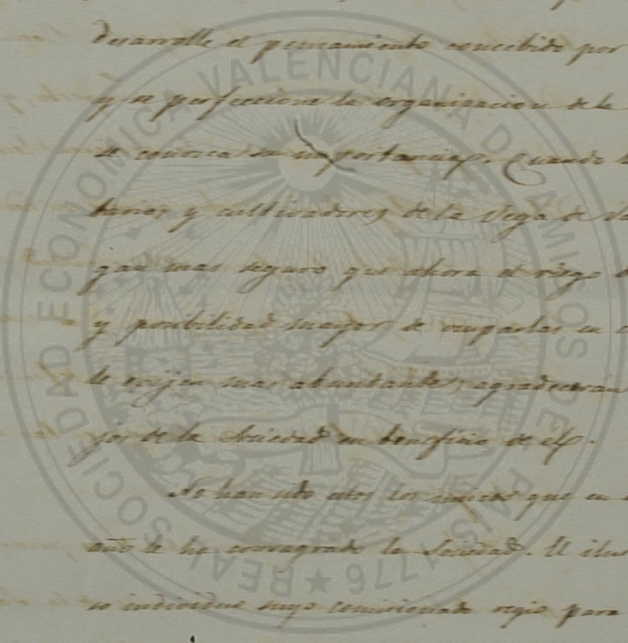 desarrolle el pensamiento concebido por
y se perfeccione la organizacion de la
se conozca su importancia. Cuando
tarios y cultivadores de la Vega de Va
gan mas seguro que ahora el riego
y posibilidad mayor de ocuparlas en c
le exijen mas abundante, agradecerán
jos de la Sociedad en beneficio de el.
No han sido estos los unicos que en
año le ha consagrado la Sociedad. El ilus
o individuo suyo comisionado regio para
REAL SOCIEDAD ECONOMICA VALENCIANA DE AMIGOS DEL PAIS 1776